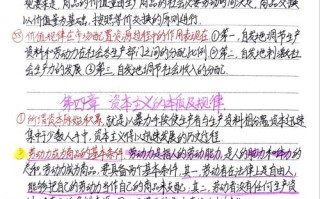 观要求是，商品的价值量由生产商品的社会必要劳动时间决定，商品交换
以价值量为基础，按照等价交换的原则进行。
价值规律在市场配置资源过程中的作用表现在①第一，自发地调节生产
资料和劳动力在社会各生产部门之间的分配比例。②第二，自发地刺激社
会生产力的发展 ③第三，自发地调节社会收入的分配。
第四章 资本主义的本质及规律
① 所谓资本原始积累，就是以暴力手段使生产者与生产资料相分离，资本迅速
集中于少数人手中，资本主义得以迅速发展的历史过程。
劳动力成为商品的基本条件 劳动力是指人的劳动能力，是人的脑力和体力的
总和。劳动力成为商品，要具备两个基本条件，其一，劳动者在法律上是自由人，
能够把自己的劳动力当作自己的商品来支配，其二，劳动者没有任何生产资